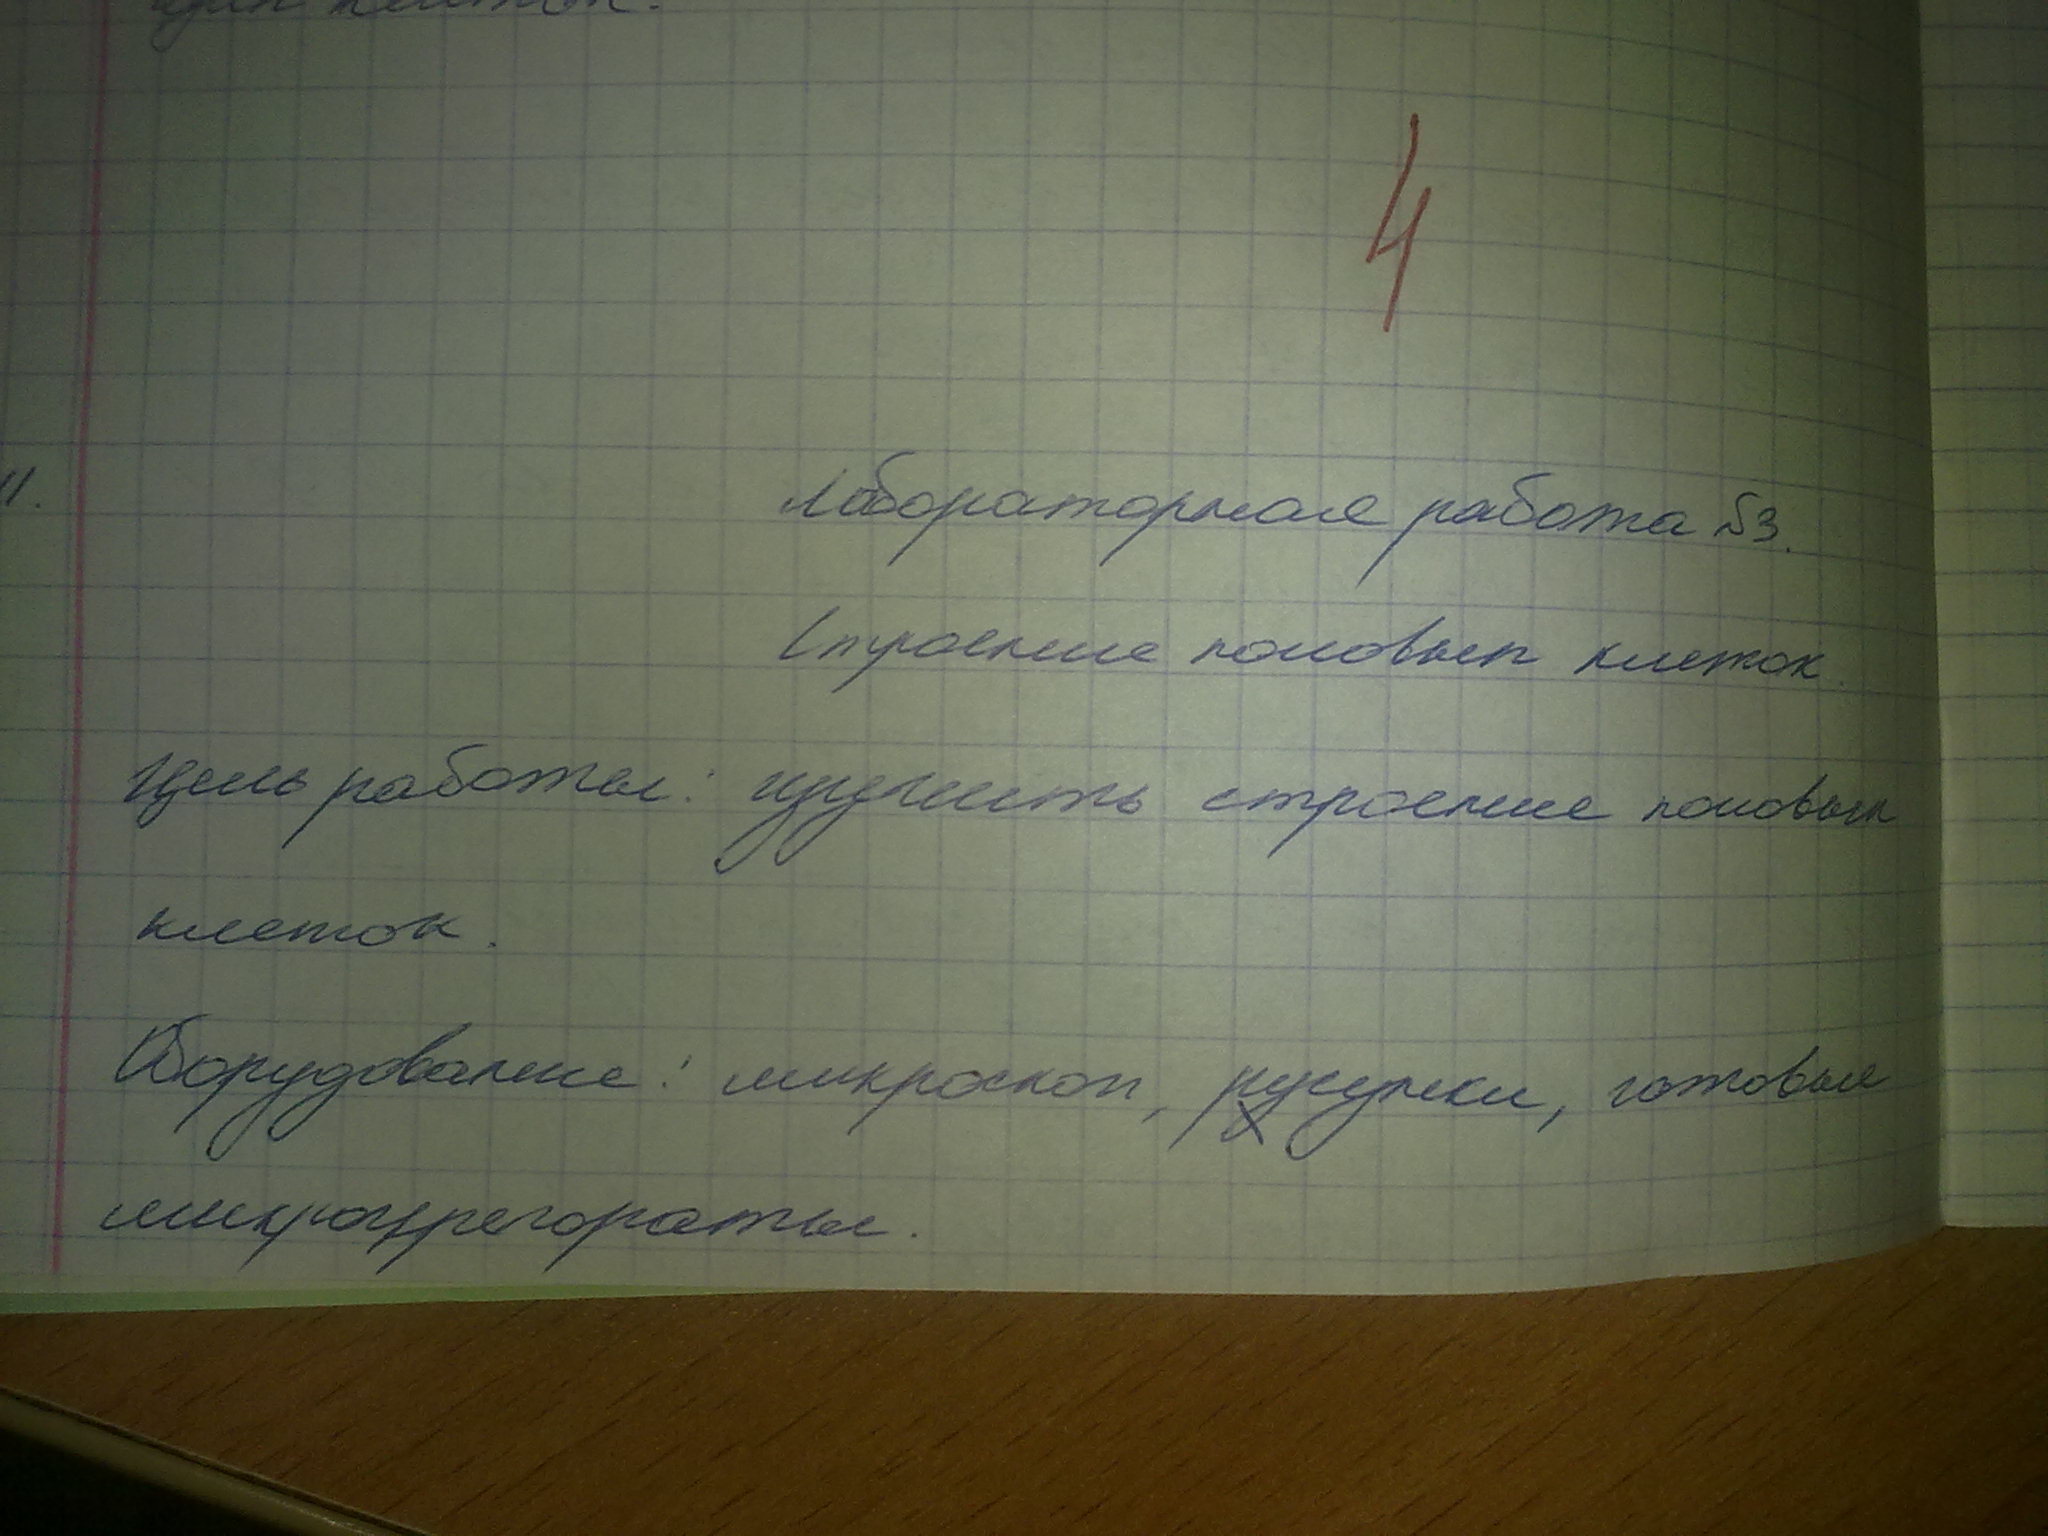 клеток.
4
11.
Лабораторная работа №3.
Строение половых клеток.
Цель работы: изучить строение половых
клеток.
Оборудование: микроскоп, русунки, готовые
микропрепораты.